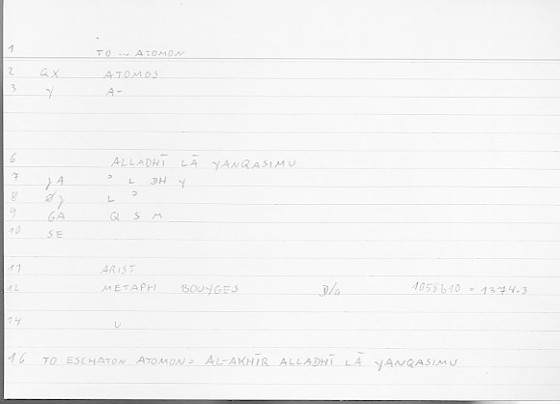 1 TO ... ATOMON
2 GX ATOMOS
3 γ A-
6 ALLADHĪ LĀ YANQASIMU
7 JA ʾ L DH Y
8 L ʾ
9 GA Q S M
10 SE
11 ARIST
12 METAPH BOUYGES 1058b10 = 1374.3
14 U
16 TO ESCHATON ATOMON = AL-AKHĪR ALLADHĪ LĀ YANQASIMU